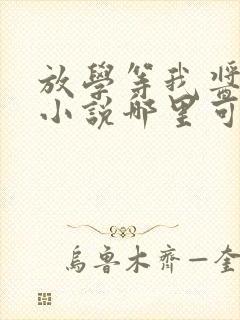 放學等我醬
小說哪里可
烏魯木齊—奎